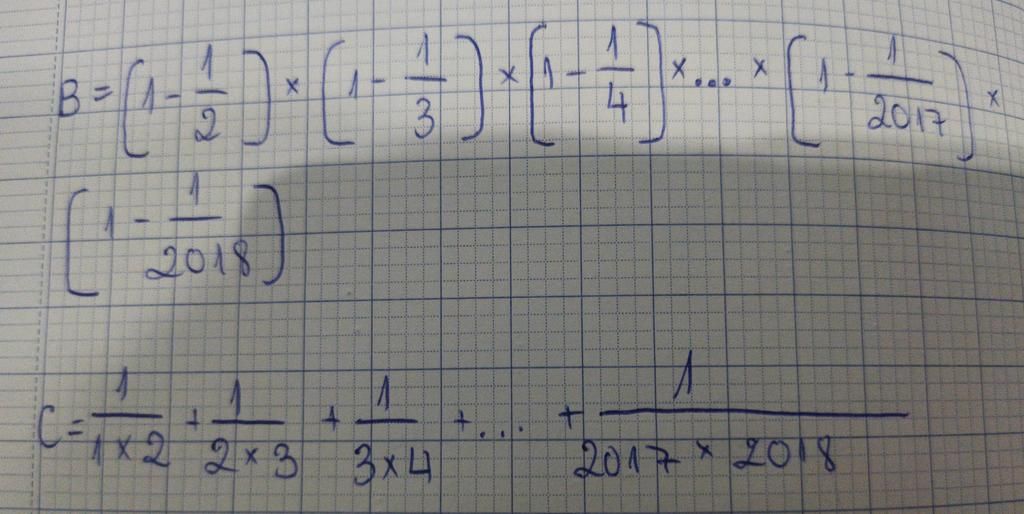 B = (1 - 1/2) × (1 - 1/3) × (1 - 1/4) × ... × (1 - 1/2017) ×
(1 - 1/2018)
C = 1/(1 × 2) + 1/(2 × 3) + 1/(3 × 4) + ... + 1/(2017 × 2018)